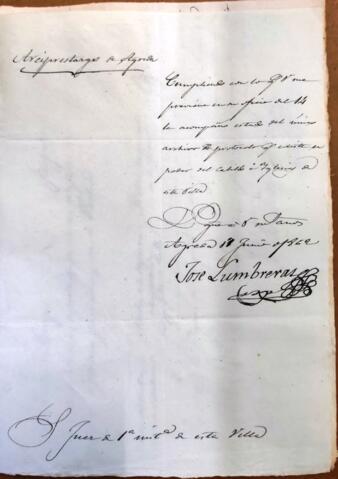 Arciprestazgo de Agreda
Cumpliendo con lo q.e V. me
previene en su oficio del 14
le acompaño estado del único
archivo de protocolos q.e existe en
poder del Cabildo é Iglesias de
esta Villa
D. gue á V. m. años
Agreda 18 Junio 1862
José Lumbreras
S. Juez de 1ª inst.ª de esta Villa